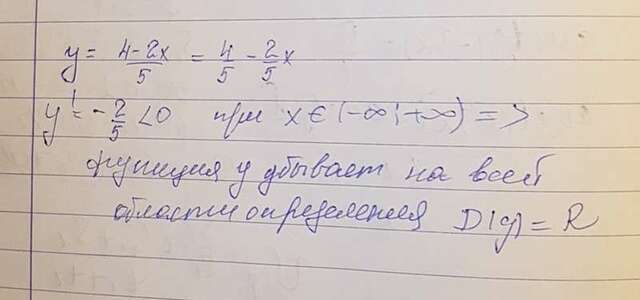 y = (4-2x)/5 = 4/5 - 2/5 x
y' = - 2/5 < 0 при x ∈ (-∞; +∞) =>
функция y убывает на всей
области определения D(y) = R